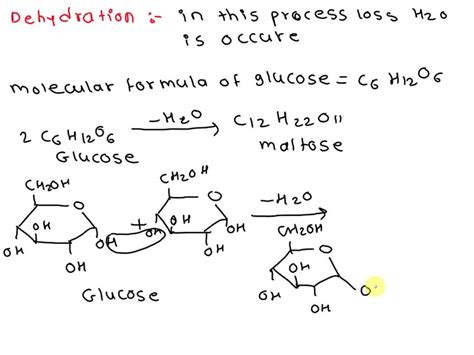 Dehydration :- in this process loss H2O
is occure
molecular formula of glucose = C6 H12O6
2 C6H12O6 -H2O C12 H22O11
Glucose maltose
CH2OH CH2OH -H2O
O O
OH + OH
OH OH OH OH
OH OH
CH2OH
O
OH
OH O
OH
Glucose